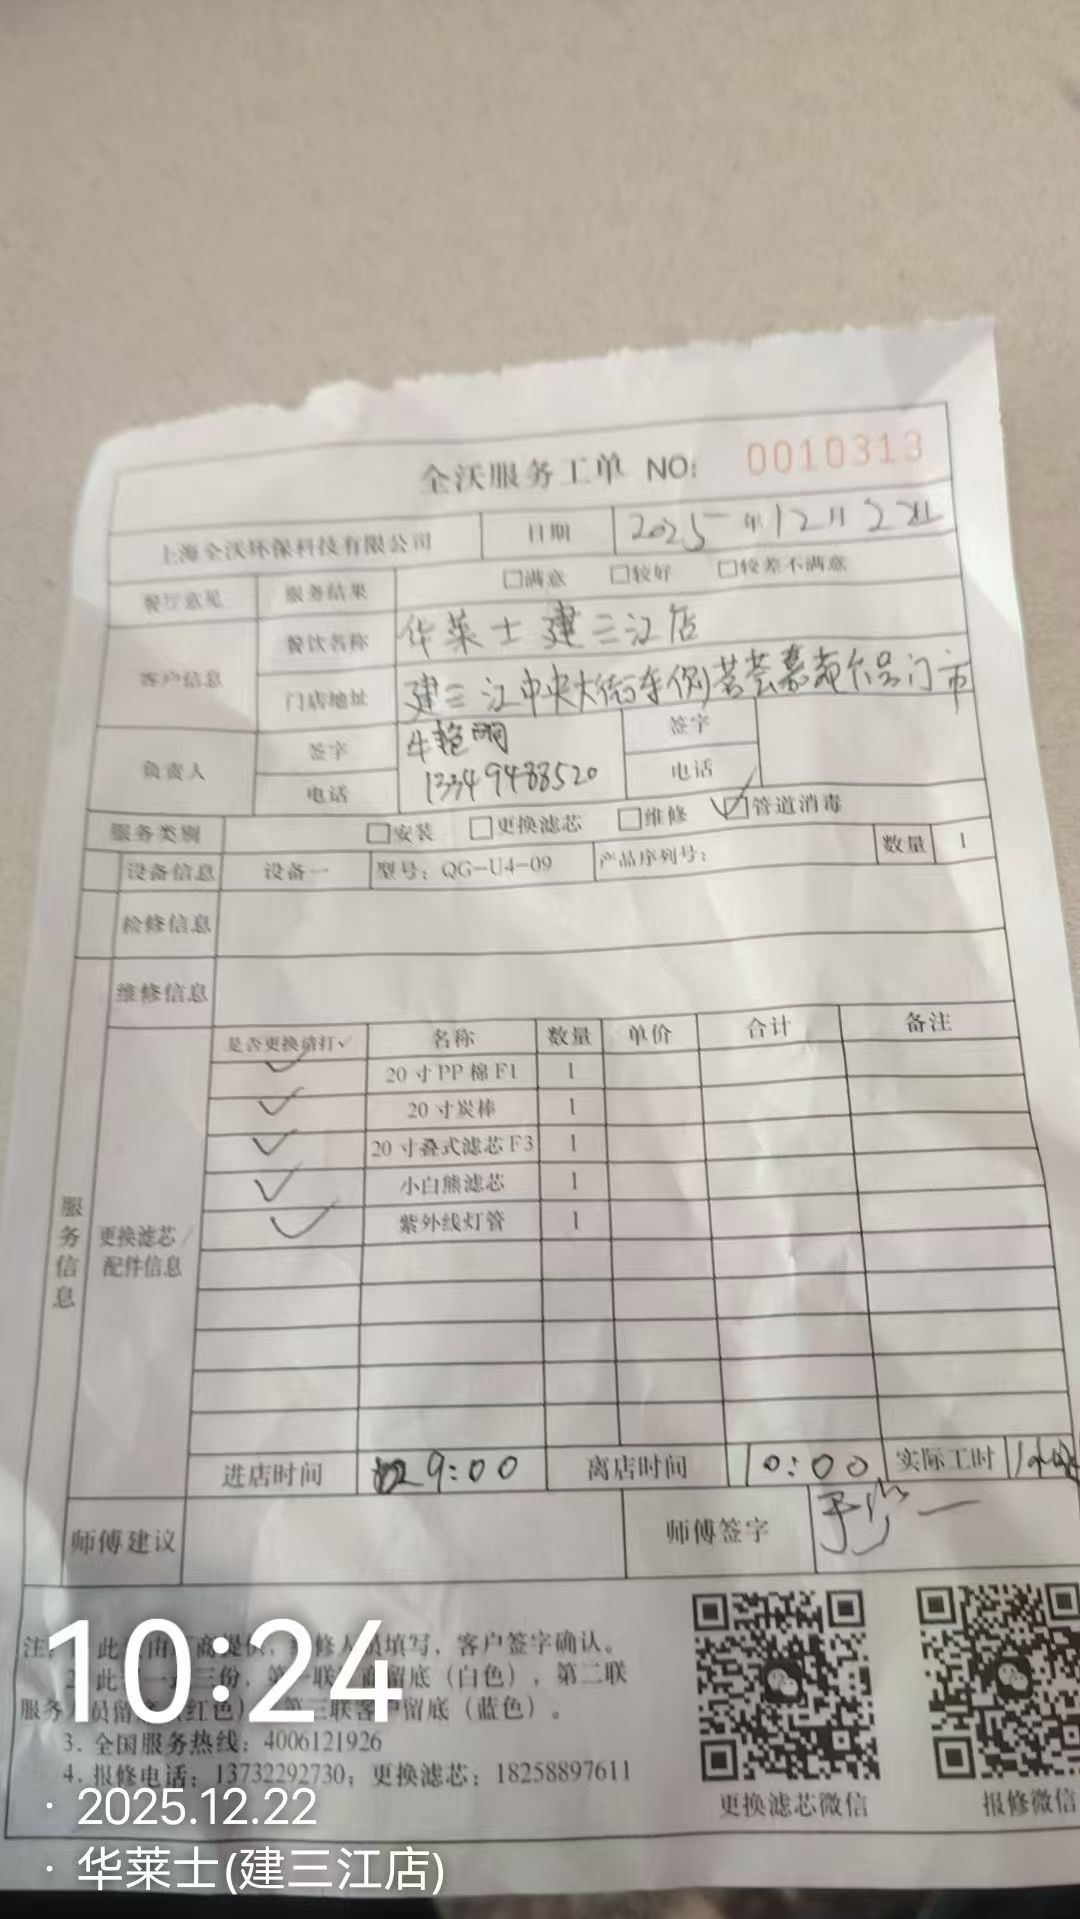 全沃服务工单 NO: 0010313
上海全沃环保科技有限公司 日期 2025年12月22日
餐厅意见 服务结果 □满意 □较好 □较差不满意
客户信息 餐饮名称 华莱士建三江店
门店地址 建三江中央大街东侧荟慕苑号门市
负责人 签字 牛艳丽 签字
电话 13349488520 电话
服务类别 □安装 □更换滤芯 □维修 ☑管道消毒
设备信息 设备一 型号：QG-U4-09 产品序列号： 数量 1
检修信息
维修信息
服务信息
更换滤芯/
配件信息
是否更换请打✓ 名称 数量 单价 合计 备注
✓ 20寸PP棉F1 1
✓ 20寸炭棒 1
✓ 20寸叠式滤芯F3 1
✓ 小白熊滤芯 1
✓ 紫外线灯管 1
进店时间 9:00 离店时间 10:00 实际工时
师傅建议 师傅签字
注 此 由 商提供， 修人员填写，客户签字确认。
2 此 一 三份， 联 商留底（白色），第二联
服务 员留 红色） 第三联客户留底（蓝色）。
3. 全国服务热线：4006121926
4. 报修电话：13732292730；更换滤芯：18258897611
更换滤芯微信 报修微信
10:24
· 2025.12.22
· 华莱士(建三江店)